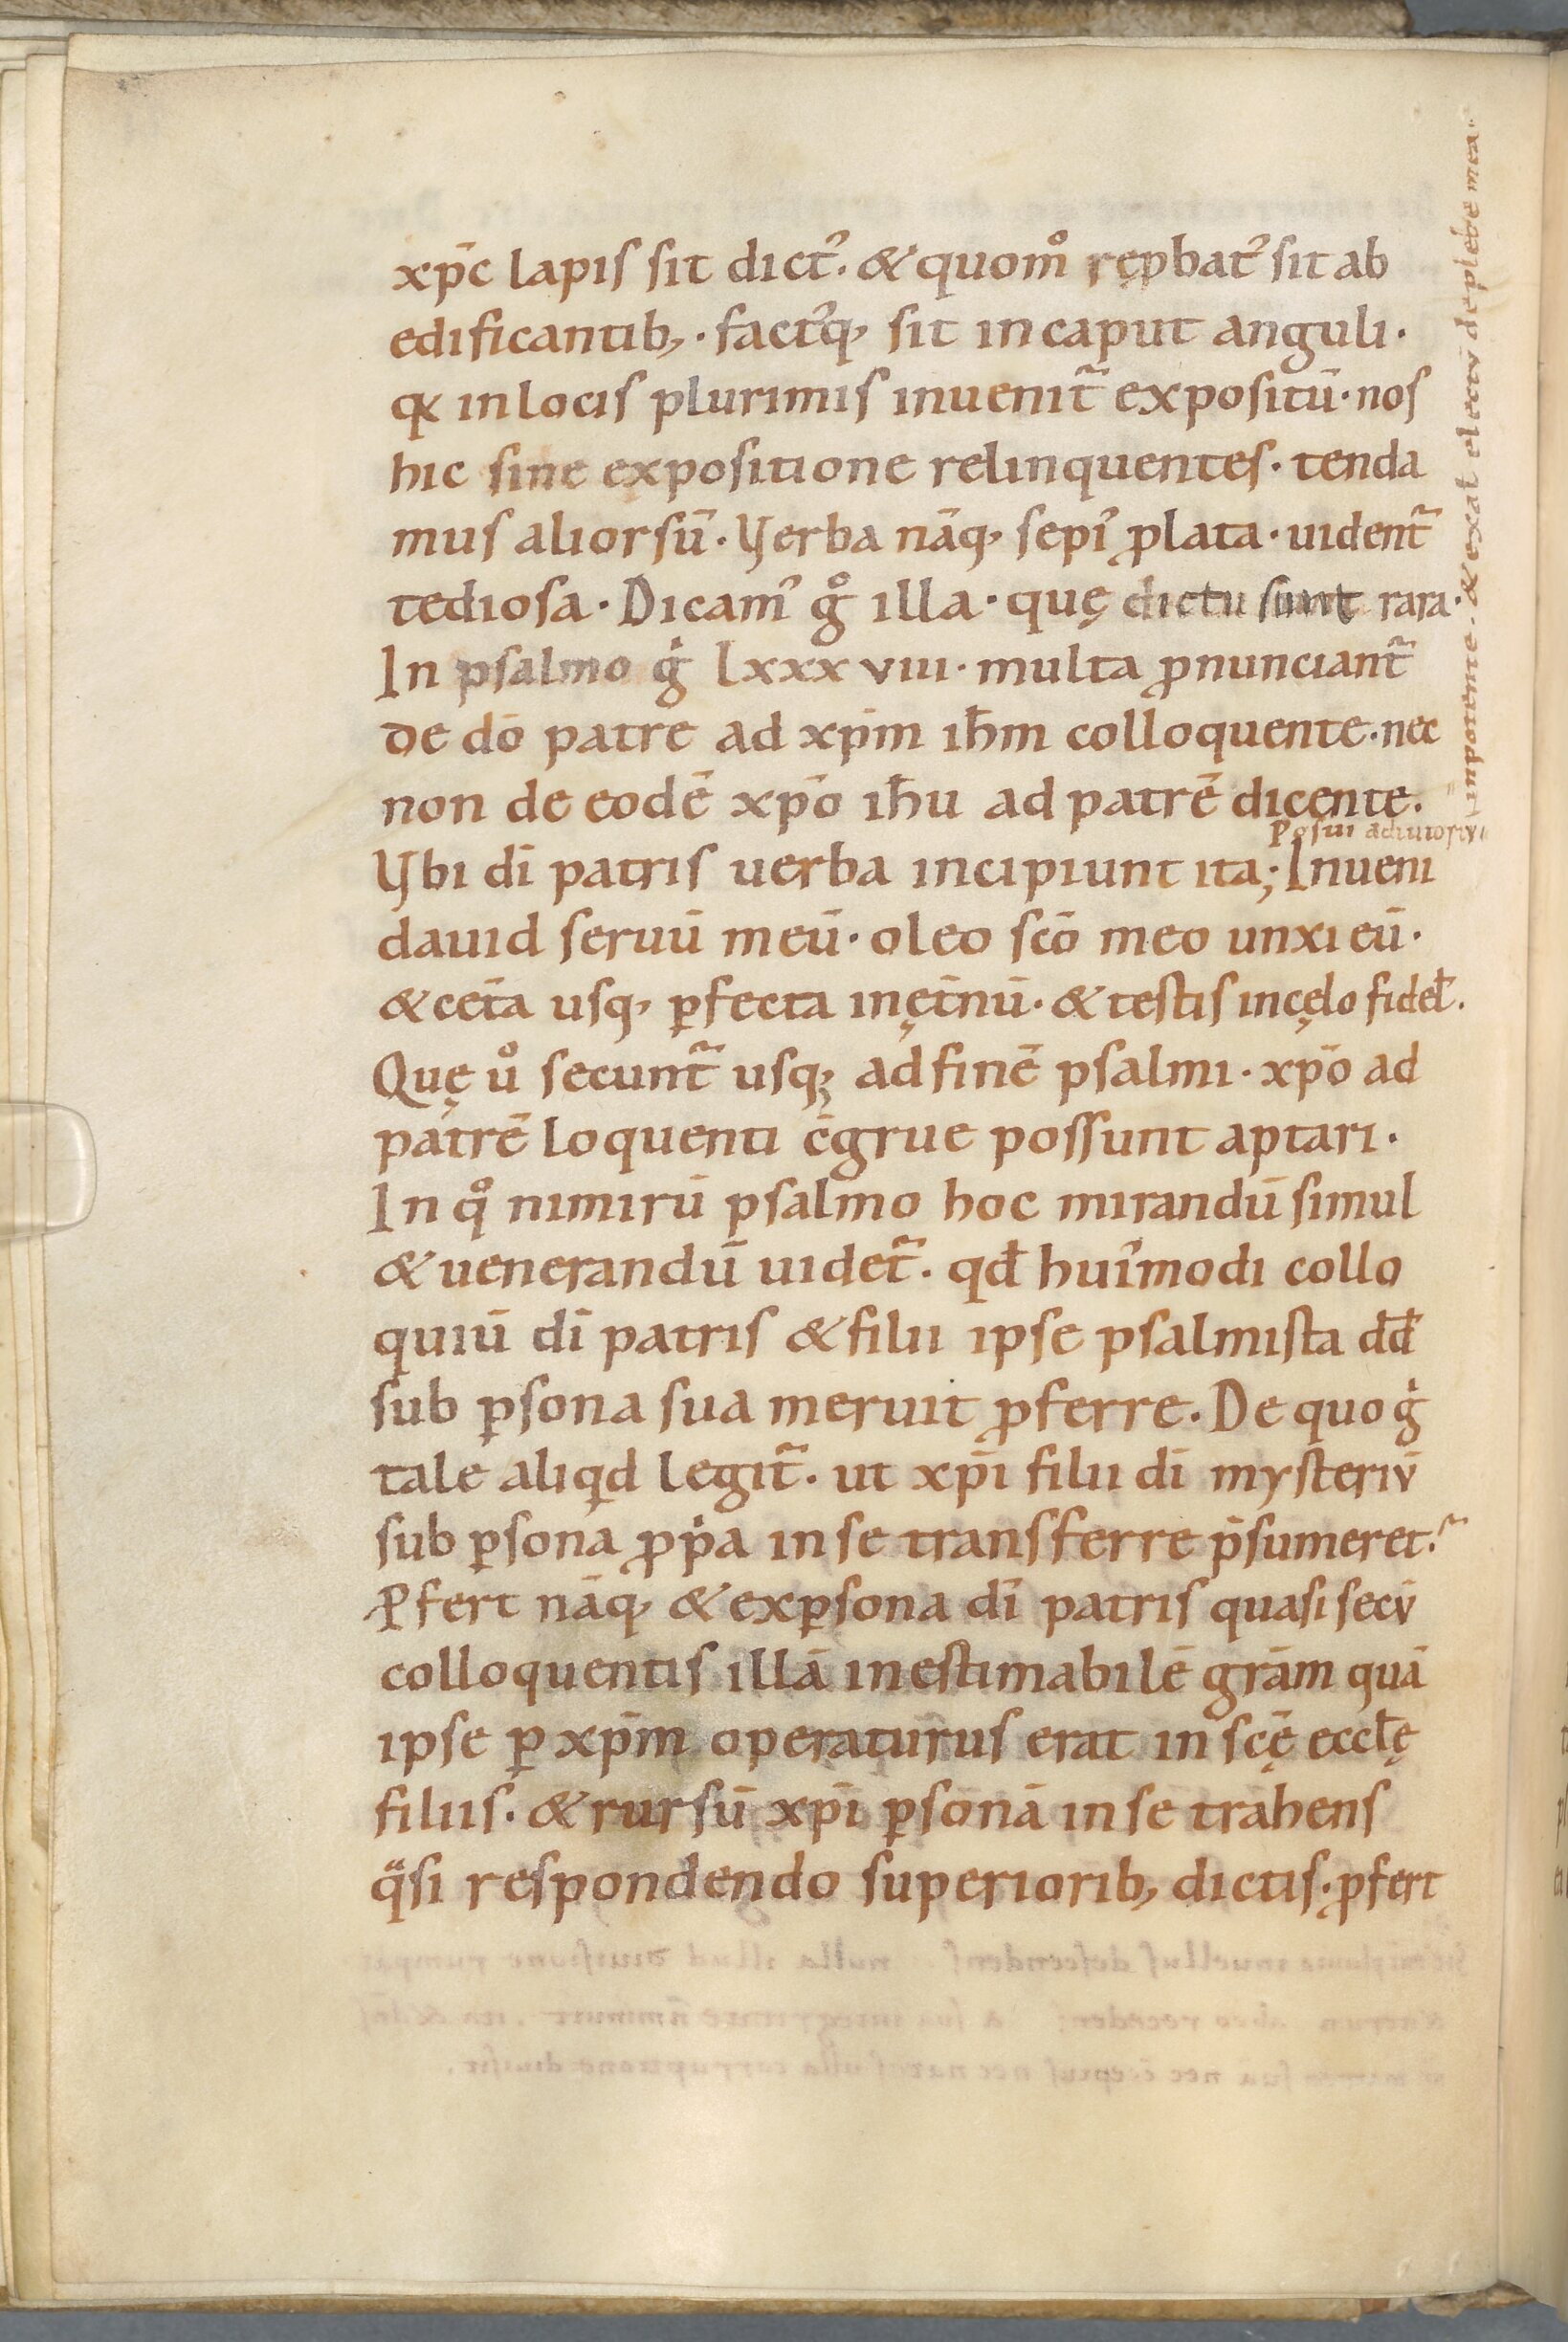 xp̄c lapis sit dictꝰ. & quom̊ rępbatꝰ sit ab
edificantib; · factꝰq; sit in caput anguli ·
qꝫ in locis plurimis inuenit᷑ expositū · nos
hic sine expositione relinquentes · tenda
mus aliorsū · Verba nāq; sepiꝰ ꝓlata · uident᷑
tediosa · Dicamꝰ g̊ illa · quę dictu sunt rara ·
In psalmo gͥ lxxxviii · multa ꝓnunciant᷑
de dō patre ad xp̄m ih̄m colloquente · nec
non de eodē xp̄o ih̄u ad patrē dicente.
Posui adiutoriū
in potente · & exalt̄ electū de plebe mea ·
Vbi dī patris uerba incipiunt ita; Inueni
dauid seruū meū · oleo sc̄o meo unxi eū ·
& cet̄a usq; ꝑfecta in ęt̄nū · & testis in cęlo fidel̄.
Quę ů secunt᷑ usq; ad finē psalmi · xp̄o ad
patrē loquenti c̄grue possunt aptari ·
In q̊ nimirū psalmo hoc mirandū simul
& uenerandū uidet᷑. qd̄ huiꝰmodi collo
quiū dī patris & filii ipse psalmista dd̄
sub ꝑsona sua meruit ꝓferre. De quo gͥ
tale aliqͥd legit᷑. ut xp̄i filii dī mysteriū
sub ꝑsona ꝓpͥa in se transferre p̄sumeret᷑.
Ꝓfert nāq; & ex ꝑsona dī patris quasi secū
colloquentis illā inestimabilē grām quā
ipse ꝑ xp̄m operaturus erat in sc̄ę eccl̄ę
filiis · & rursū xp̄i ꝑsonā in se trahens
qͣsi respondendo superiorib; dictis · ꝓfert